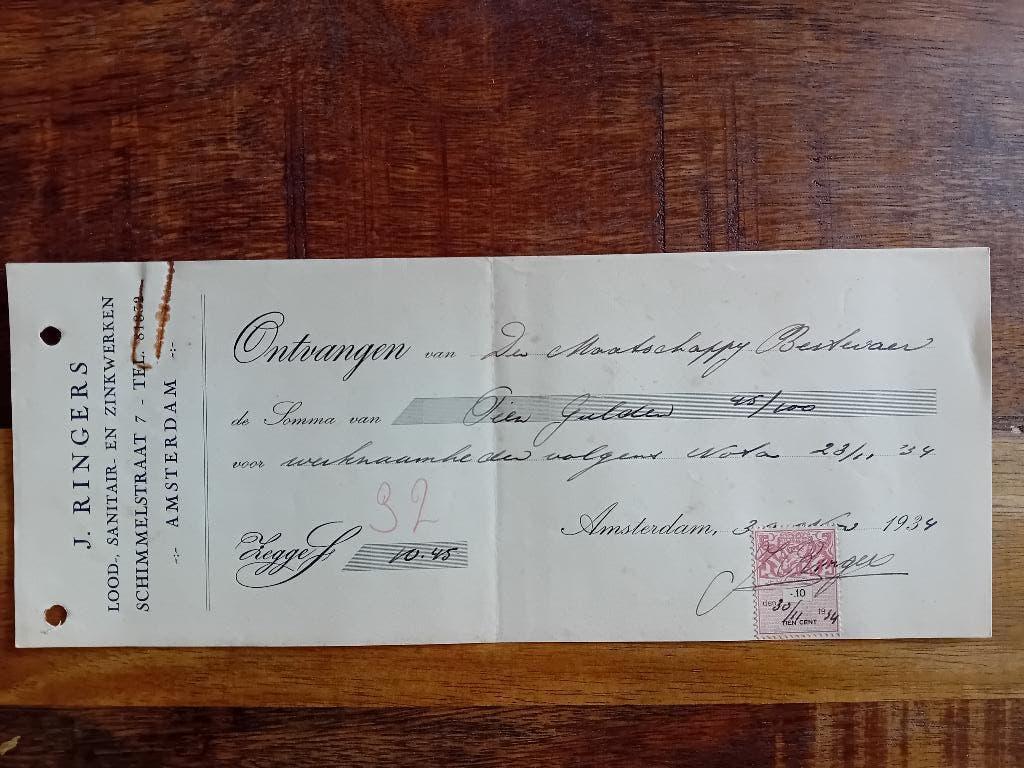 J. RINGERS
LOOD-, SANITAIR- EN ZINKWERKEN
SCHIMMELSTRAAT 7 - TEL. 81852
-:- AMSTERDAM -:-
Ontvangen van De Maatschappy Bestevaer
de Somma van Tien Gulden 45/100
voor werkzaamheden volgens Nota 23/11 '34
32
Amsterdam, 1934
Zegge f 10.45
J. Ringers
-.10
den 30/11 1934
TIEN CENT